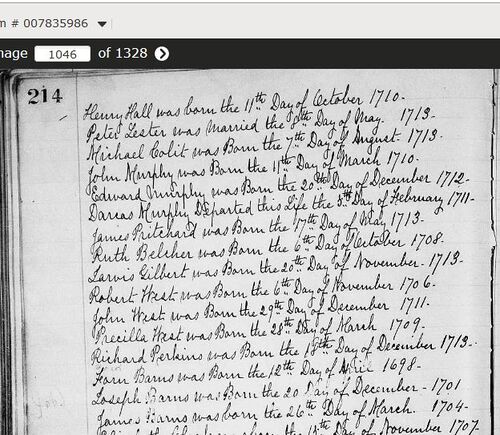 m # 007835986
mage 1046 of 1328
214
Henry Hall was born the 11th Day of October 1710-
Peter Lester was Married the 8th Day of May. 1713-
Michael Colit was Born the 7th Day of August. 1713-
John Murphy was Born the 11th Day of March 1710-
Edward Murphy was Born the 20th Day of December 1712-
Darcas Murphy Departed this Life the 3d Day of February 1711-
James Pritchard was Born the 17th Day of May 1713-
Ruth Belcher was Born the 6th Day of October 1708-
Jarvis Gilbert was Born the 20th Day of November- 1713-
Robert West was Born the 6th Day of November 1706-
John West was Born the 29th Day of December 1711-
Precilla West was Born the 28th Day of March 1709-
Richard Perkins was Born the 18th Day of December 1713-
Barns was Born the 12th Day of 1698-
Joseph Barns was Born the 20 Day of December- 1701
James Barns was born the 26th Day of March. 1704-
the Day of November 1707